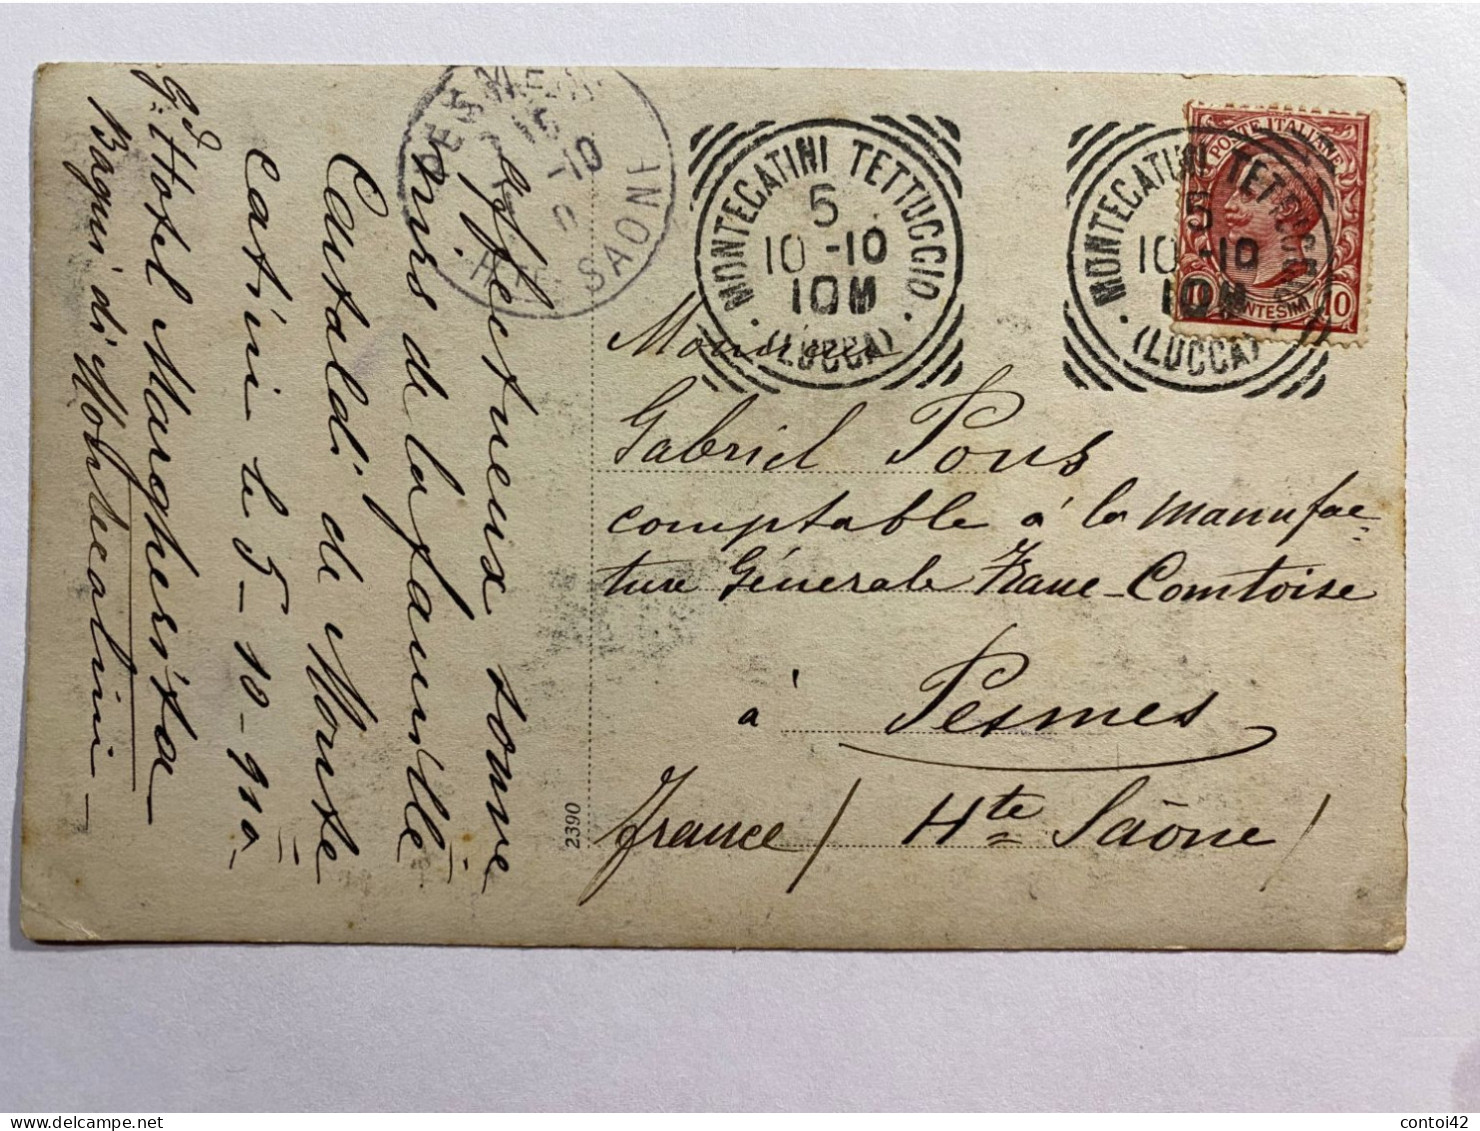 Affectueux souve
nirs de la famille
Castaldi de Monte
catini le 5-10-910
Gd Hotel Margherita
Bagni di Montecatini
PESMES
15
-10
HTE SAONE
MONTECATINI TETTUCCIO
5
10 -10
10M
(LUCCA)
MONTECATINI TETTUCCIO
5
10 -10
10M
(LUCCA)
POSTE ITALIANE
10 CENTESIMI 10
Monsieur
Gabriel Pons
comptable à la Manufac-
ture Générale Franc-Comtoise
à Pesmes
France / Hte Saône /
2390
contoi42